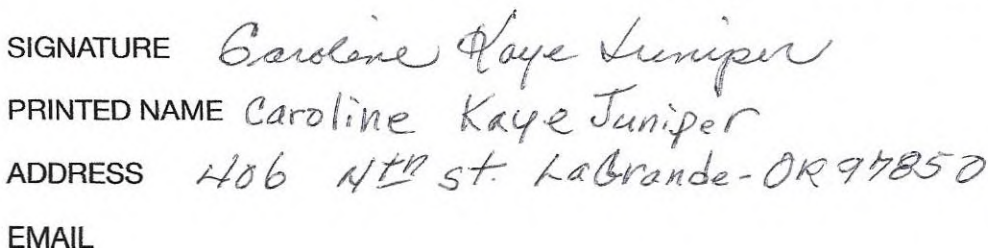 SIGNATURE Caroline Kaye Juniper
PRINTED NAME Caroline Kaye Juniper
ADDRESS 406 4th St. LaGrande-OR 97850
EMAIL